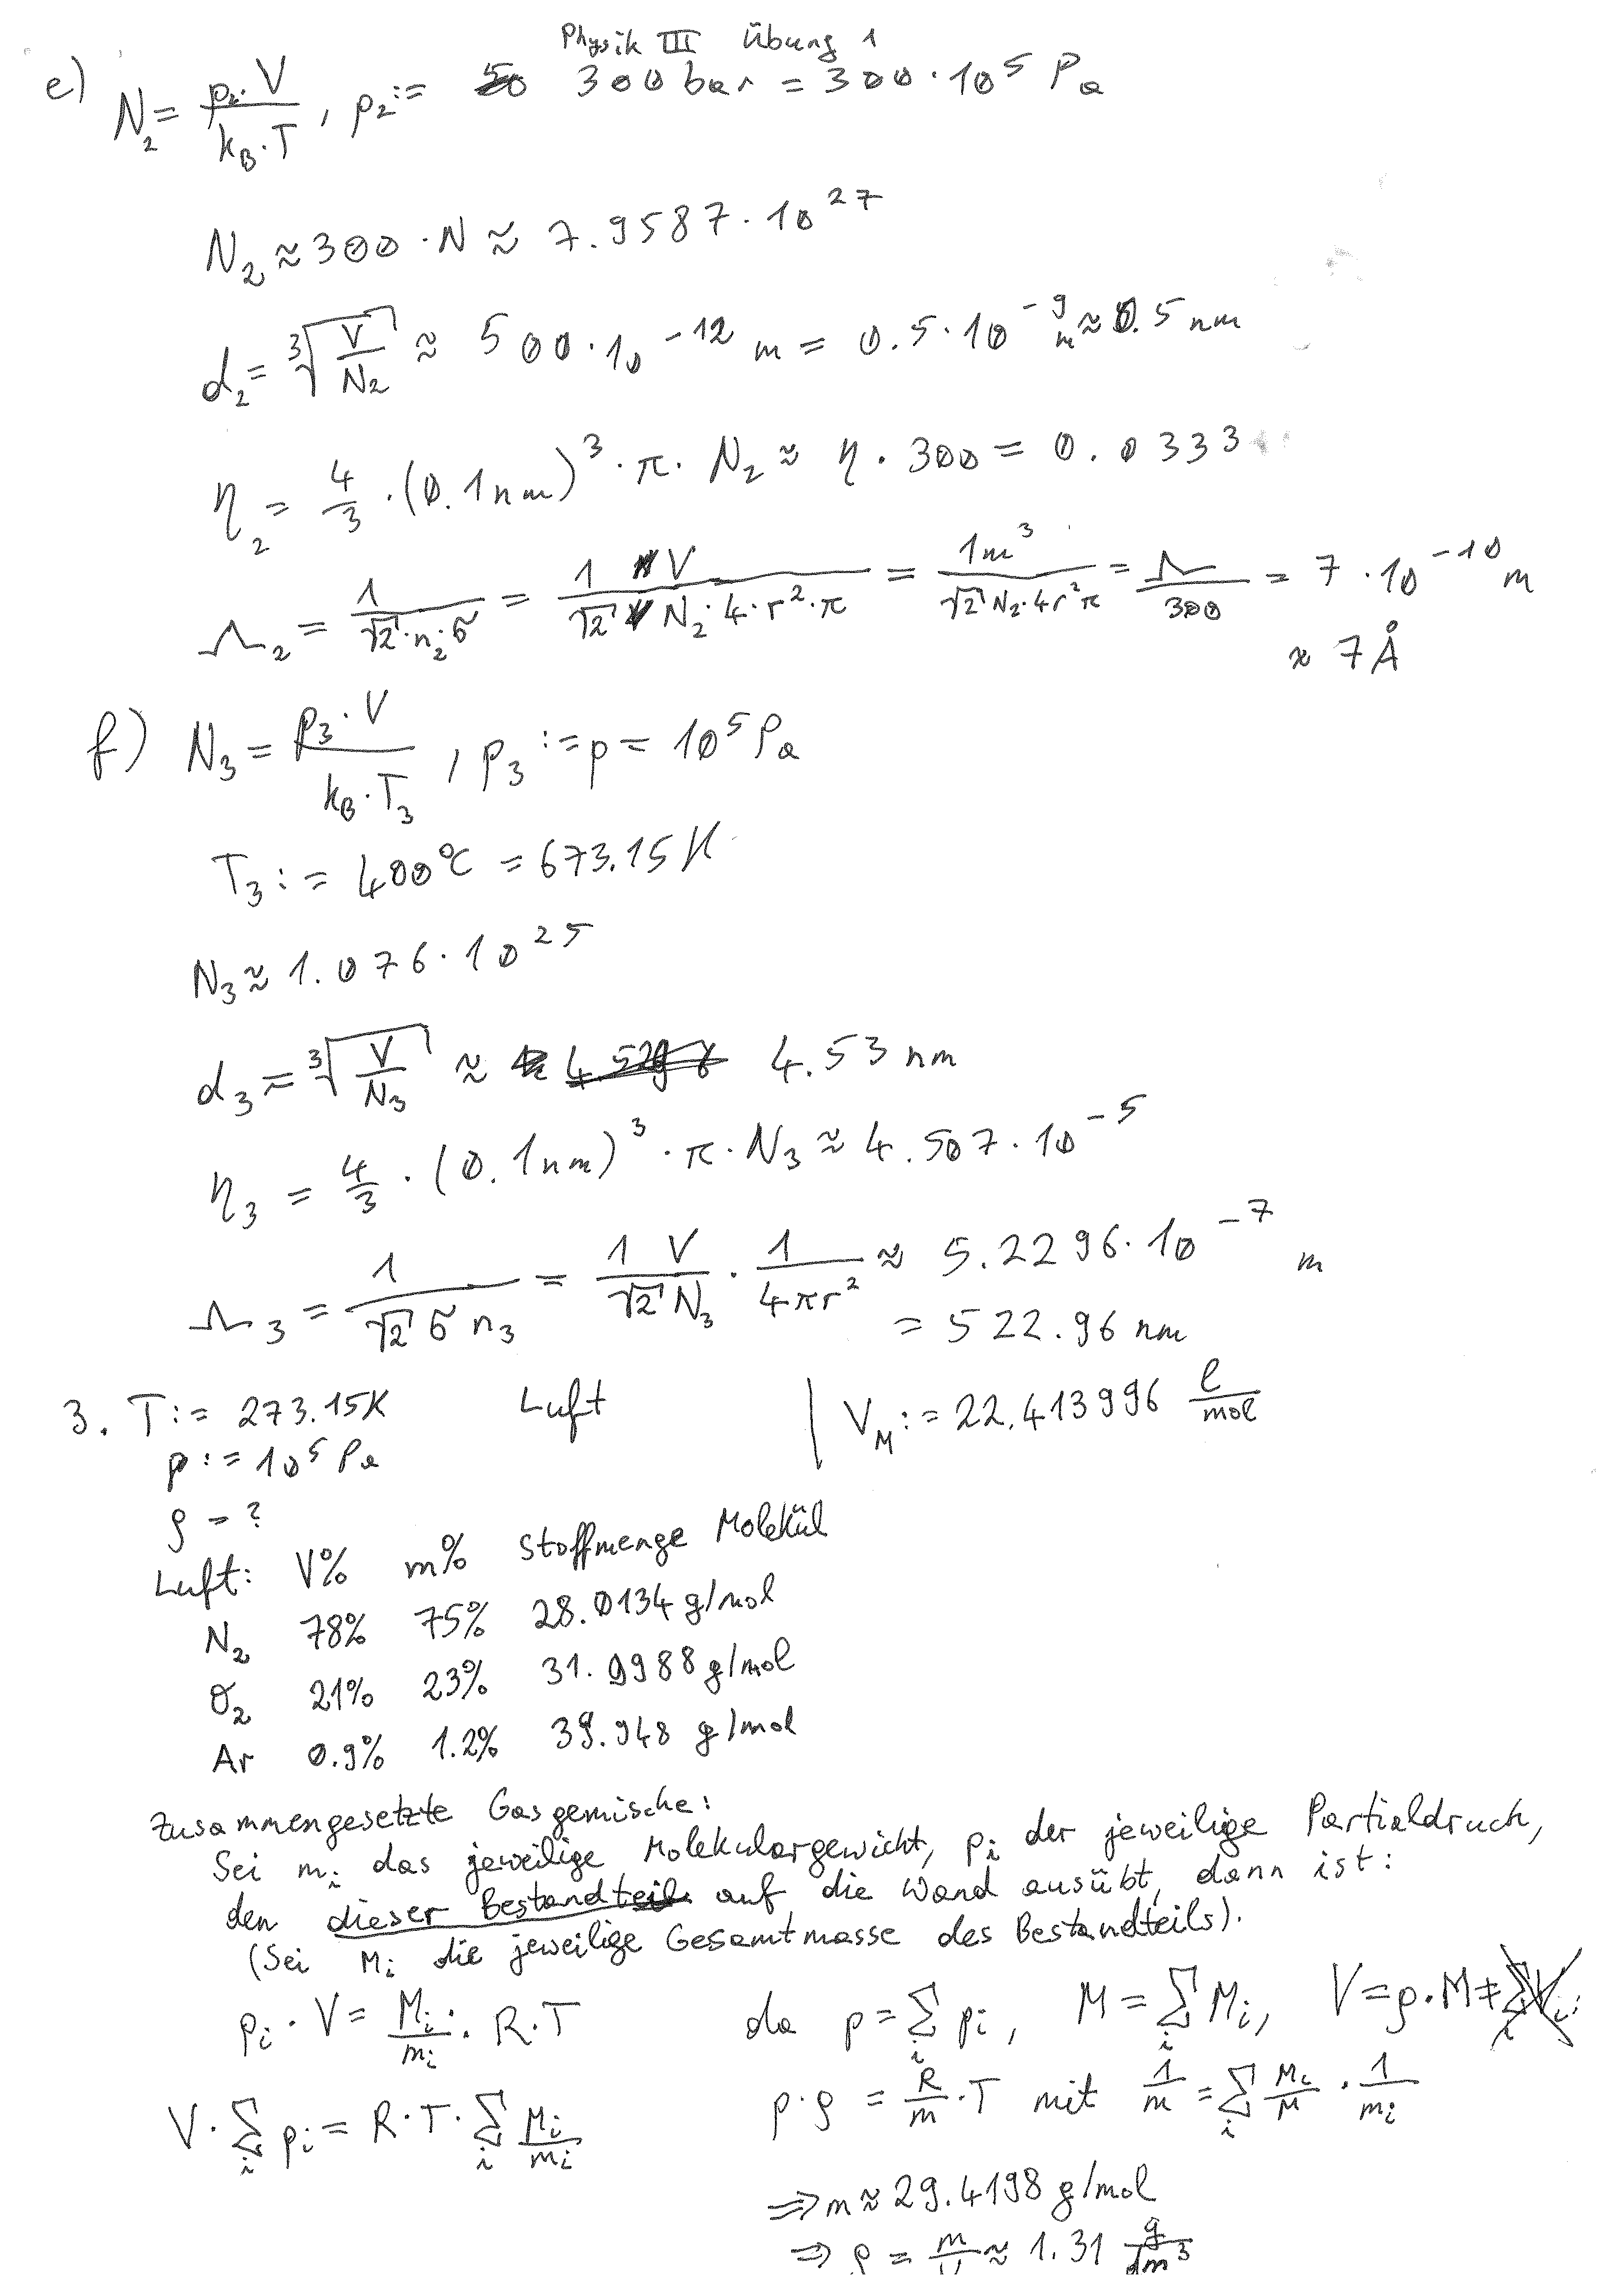 Physik III Übung 1
e) N₂ = p₂·V / k_B·T , p₂ := 300 bar = 300·10⁵ Pa
N₂ ≈ 300·N ≈ 7.9587·10²⁷
d₂ = ³√(V/N₂) ≈ 500·10⁻¹² m = 0.5·10⁻⁹ m ≈ 0.5 nm
η₂ = 4/3·(0.1nm)³·π·N₂ ≈ η·300 = 0.0333
Λ₂ = 1/(√2·n₂·σ) = 1 V/(√2 N₂·4·r²·π) = 1m³/(√2 N₂·4r²π) = Λ/300 = 7·10⁻¹⁰ m
≈ 7 Å
f) N₃ = p₃·V / k_B·T₃ , p₃ := p = 10⁵ Pa
T₃ := 400°C = 673.15 K
N₃ ≈ 1.076·10²⁵
d₃ = ³√(V/N₃) ≈ 4.53 nm
η₃ = 4/3·(0.1nm)³·π·N₃ ≈ 4.507·10⁻⁵
Λ₃ = 1/(√2 σ n₃) = 1 V/(√2 N₃) · 1/(4πr²) ≈ 5.2296·10⁻⁷ m
= 522.96 nm
3. T := 273.15K Luft | V_M := 22.413996 l/mol
p := 10⁵ Pa
ρ = ?
Luft: V% m% Stoffmenge Molekül
N₂ 78% 75% 28.0134 g/mol
O₂ 21% 23% 31.9988 g/mol
Ar 0.9% 1.2% 39.948 g/mol
Zusammengesetzte Gasgemische:
Sei mᵢ das jeweilige Molekulargewicht, pᵢ der jeweilige Partialdruck,
den dieser Bestandteil auf die Wand ausübt, dann ist:
(Sei Mᵢ die jeweilige Gesamtmasse des Bestandteils).
pᵢ·V = Mᵢ/mᵢ · R·T da p = Σᵢ pᵢ, M = Σᵢ Mᵢ, V = ρ·M
V·Σᵢ pᵢ = R·T·Σᵢ Mᵢ/mᵢ p·ρ = R/m·T mit 1/m = Σᵢ Mᵢ/M · 1/mᵢ
⇒ m ≈ 29.4198 g/mol
⇒ ρ = m/V ≈ 1.31 g/dm³